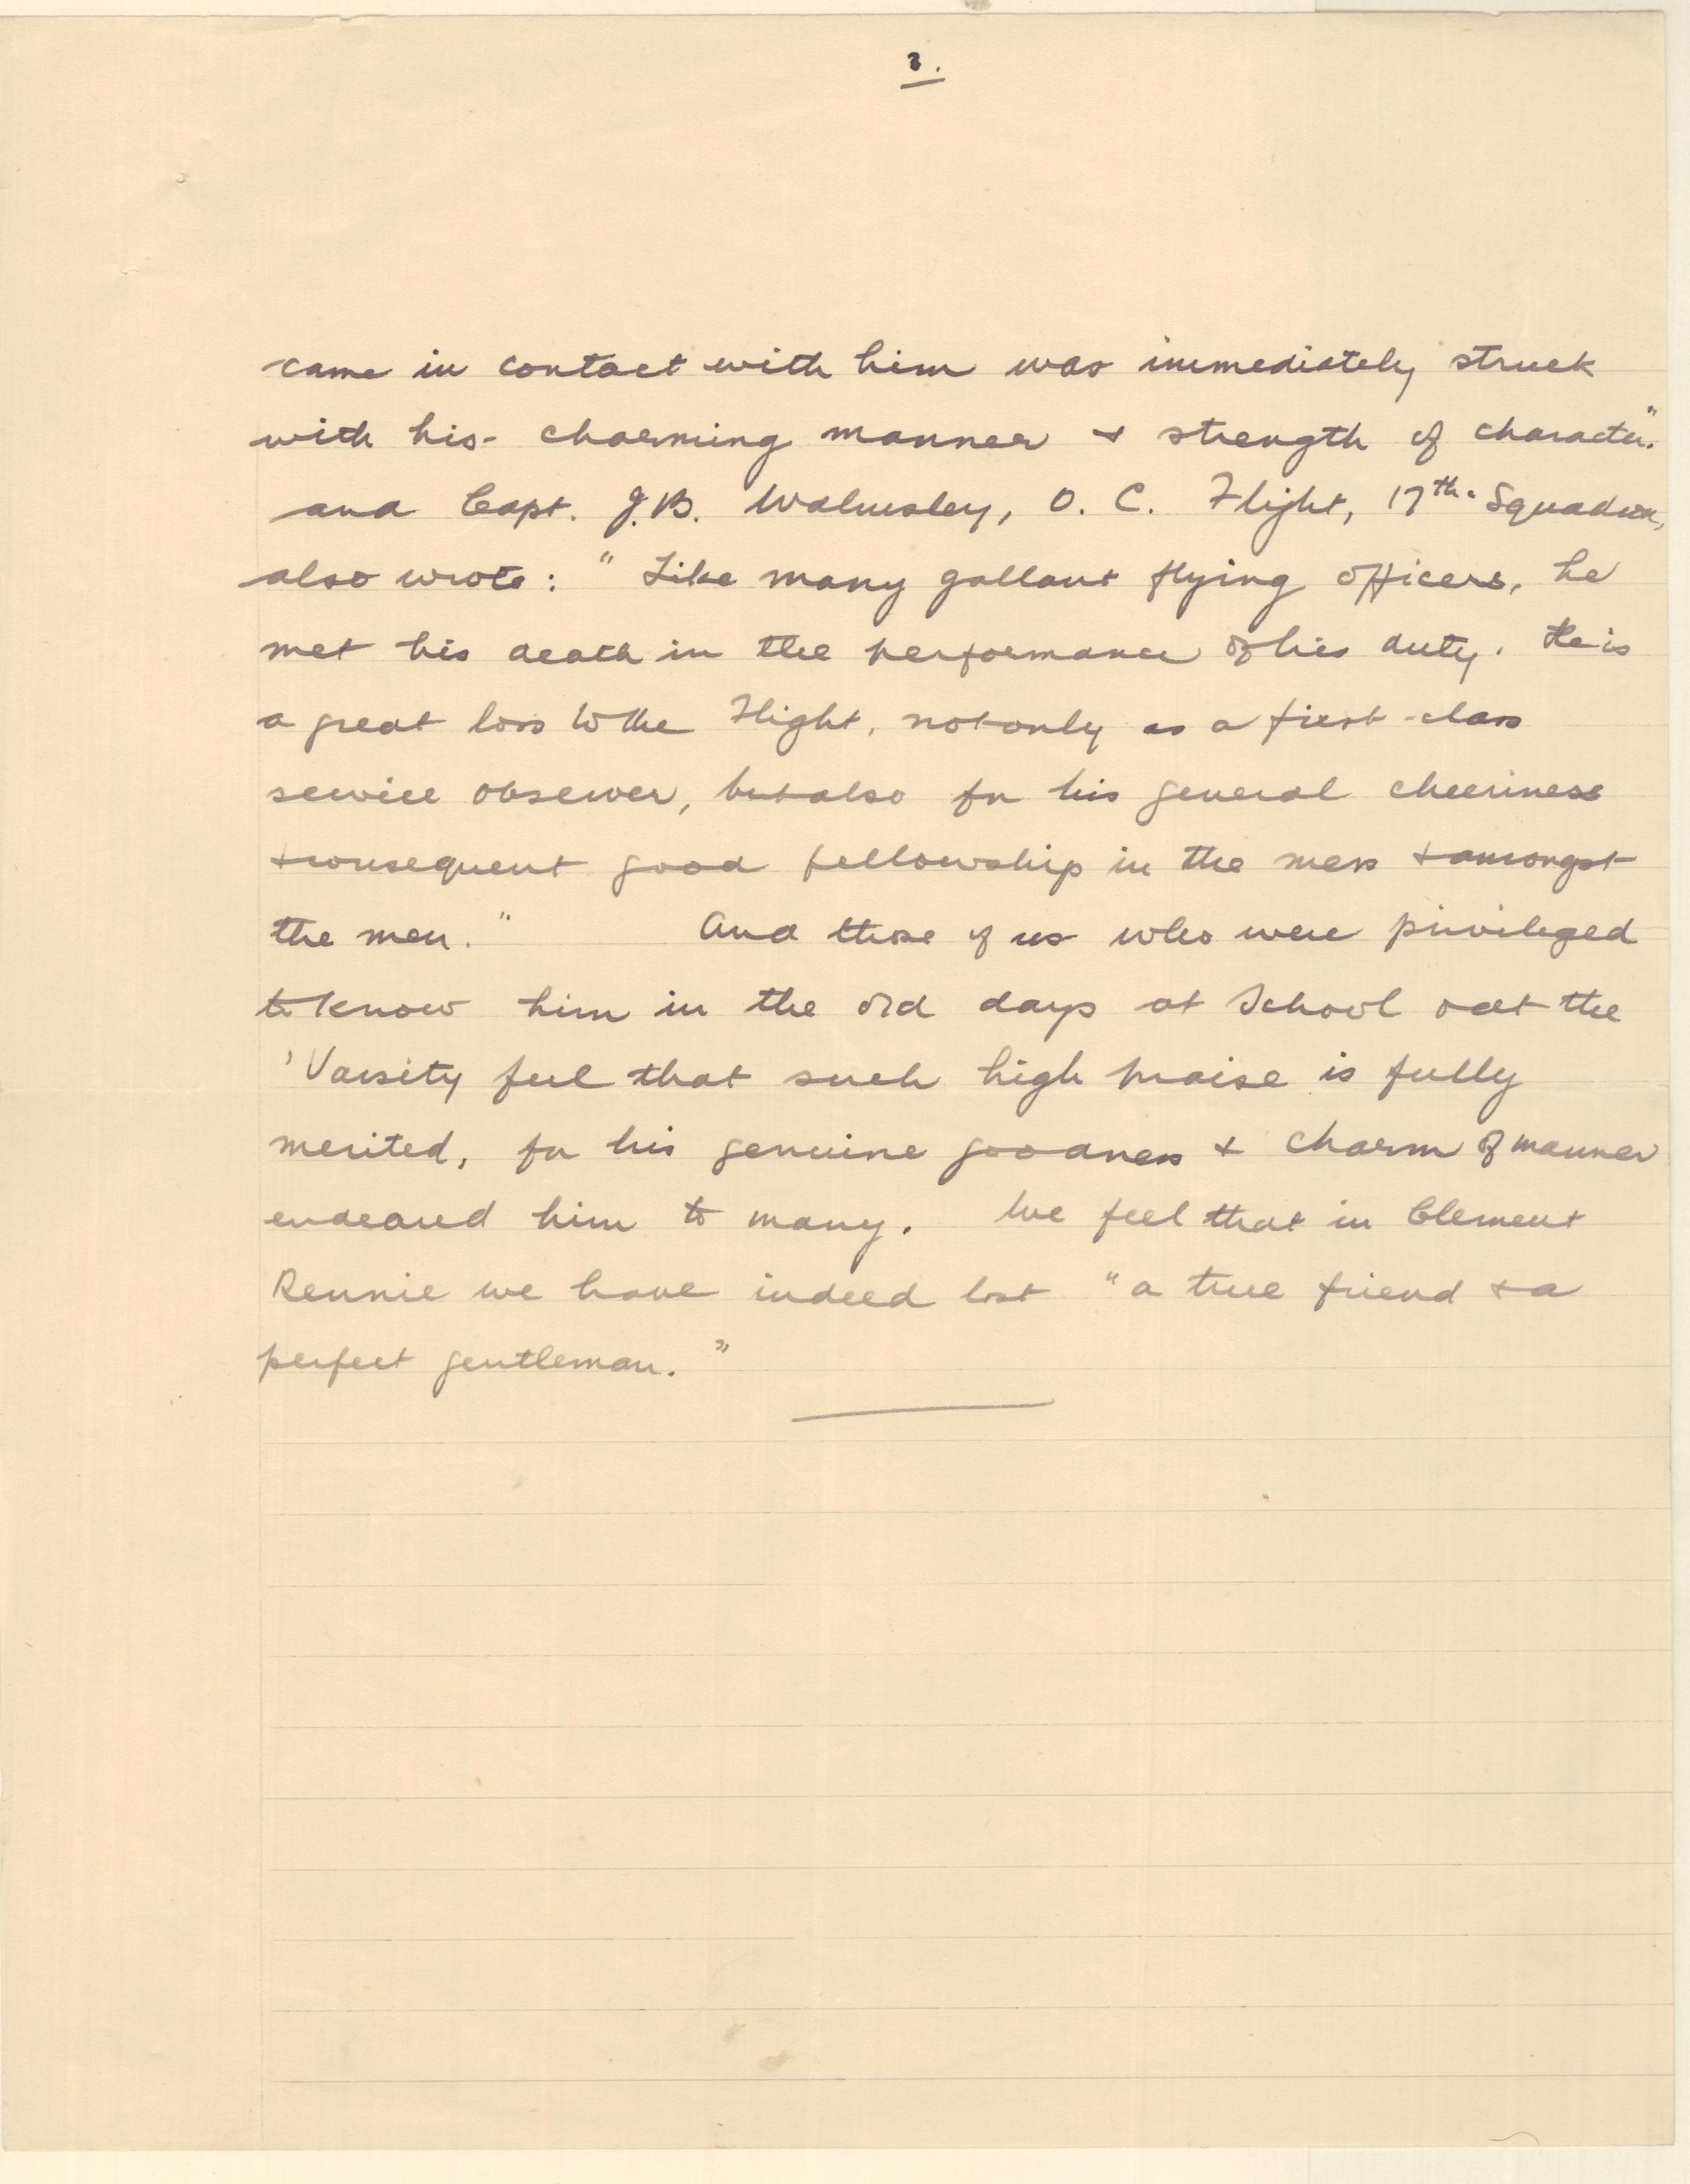 3.
came in contact with him was immediately struck
with his charming manner & strength of character."
and Capt. J.B. Walmsley, O. C. Flight, 17th. Squadron,
also wrote: " Like many gallant flying officers, he
met his death in the performance of his duty. He is
a great loss to the Flight, not only as a first-class
service observer, but also for his general cheeriness
& consequent good fellowship in the mess & amongst
the men." And those of us who were privileged
to know him in the old days at School & at the
'Varsity feel that such high praise is fully
merited, for his genuine goodness & charm of manner
endeared him to many. We feel that in Clement
Rennie we have indeed lost "a true friend & a
perfect gentleman."